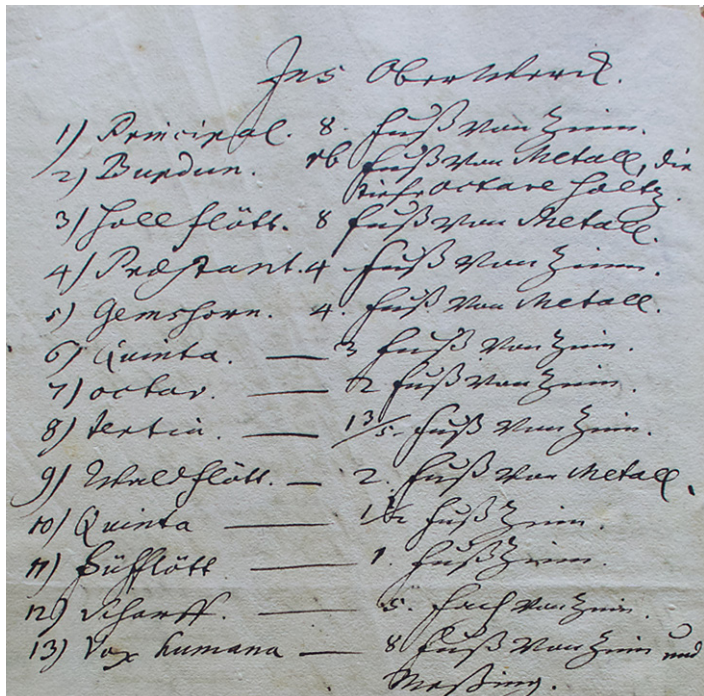 Ins OberWerck.
1) Principal. 8. Fuß von Zinn.
2) Burdun. 16 Fuß von Metall, die
tiefe octave Holtz.
3) Hollflött. 8 Fuß von Metall.
4) Præstant. 4 Fuß von Zinn.
5) Gemshorn. 4. Fuß von Metall.
6) Quinta. — 3 Fuß von Zinn.
7) octav. — 2 Fuß von Zinn.
8) tertia. — 1 3/5. Fuß von Zinn.
9) Waldflött. — 2. Fuß von Metall.
10) Quinta — 1 1/2 Fuß Zinn.
11) Süfflött — 1. Fuß Zinn.
12) Scharff. — 5. fach von Zinn.
13) Vox humana — 8 Fuß von Zinn und
Meßing.